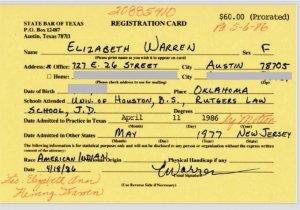 20885410
STATE BAR OF TEXAS REGISTRATION CARD $60.00 (Prorated)
P.O. Box 12487
Austin, Texas 78711 5-6-86
Name ELIZABETH WARREN Sex F
(Please print name as you wish it to appear)
Address: Office: 727 E. 26 STREET City AUSTIN 78705
Home: City
Date of Birth Place OKLAHOMA
Schools Attended UNIV. OF HOUSTON, B.S., RUTGERS LAW
SCHOOL, J.D.
Date Admitted to Practice in Texas April 11 1986 by Motion
Date Admitted in Other States MAY 1977 NEW JERSEY
The following information is for statistical purposes only and will not be disclosed to any person or organization without the express written consent of the attorney:
Race AMERICAN INDIAN Physical Handicap if any
Date 4/18/86 EWarren
Lic: Elizabeth Ann (Signature)
(Use Reverse Side if Necessary)